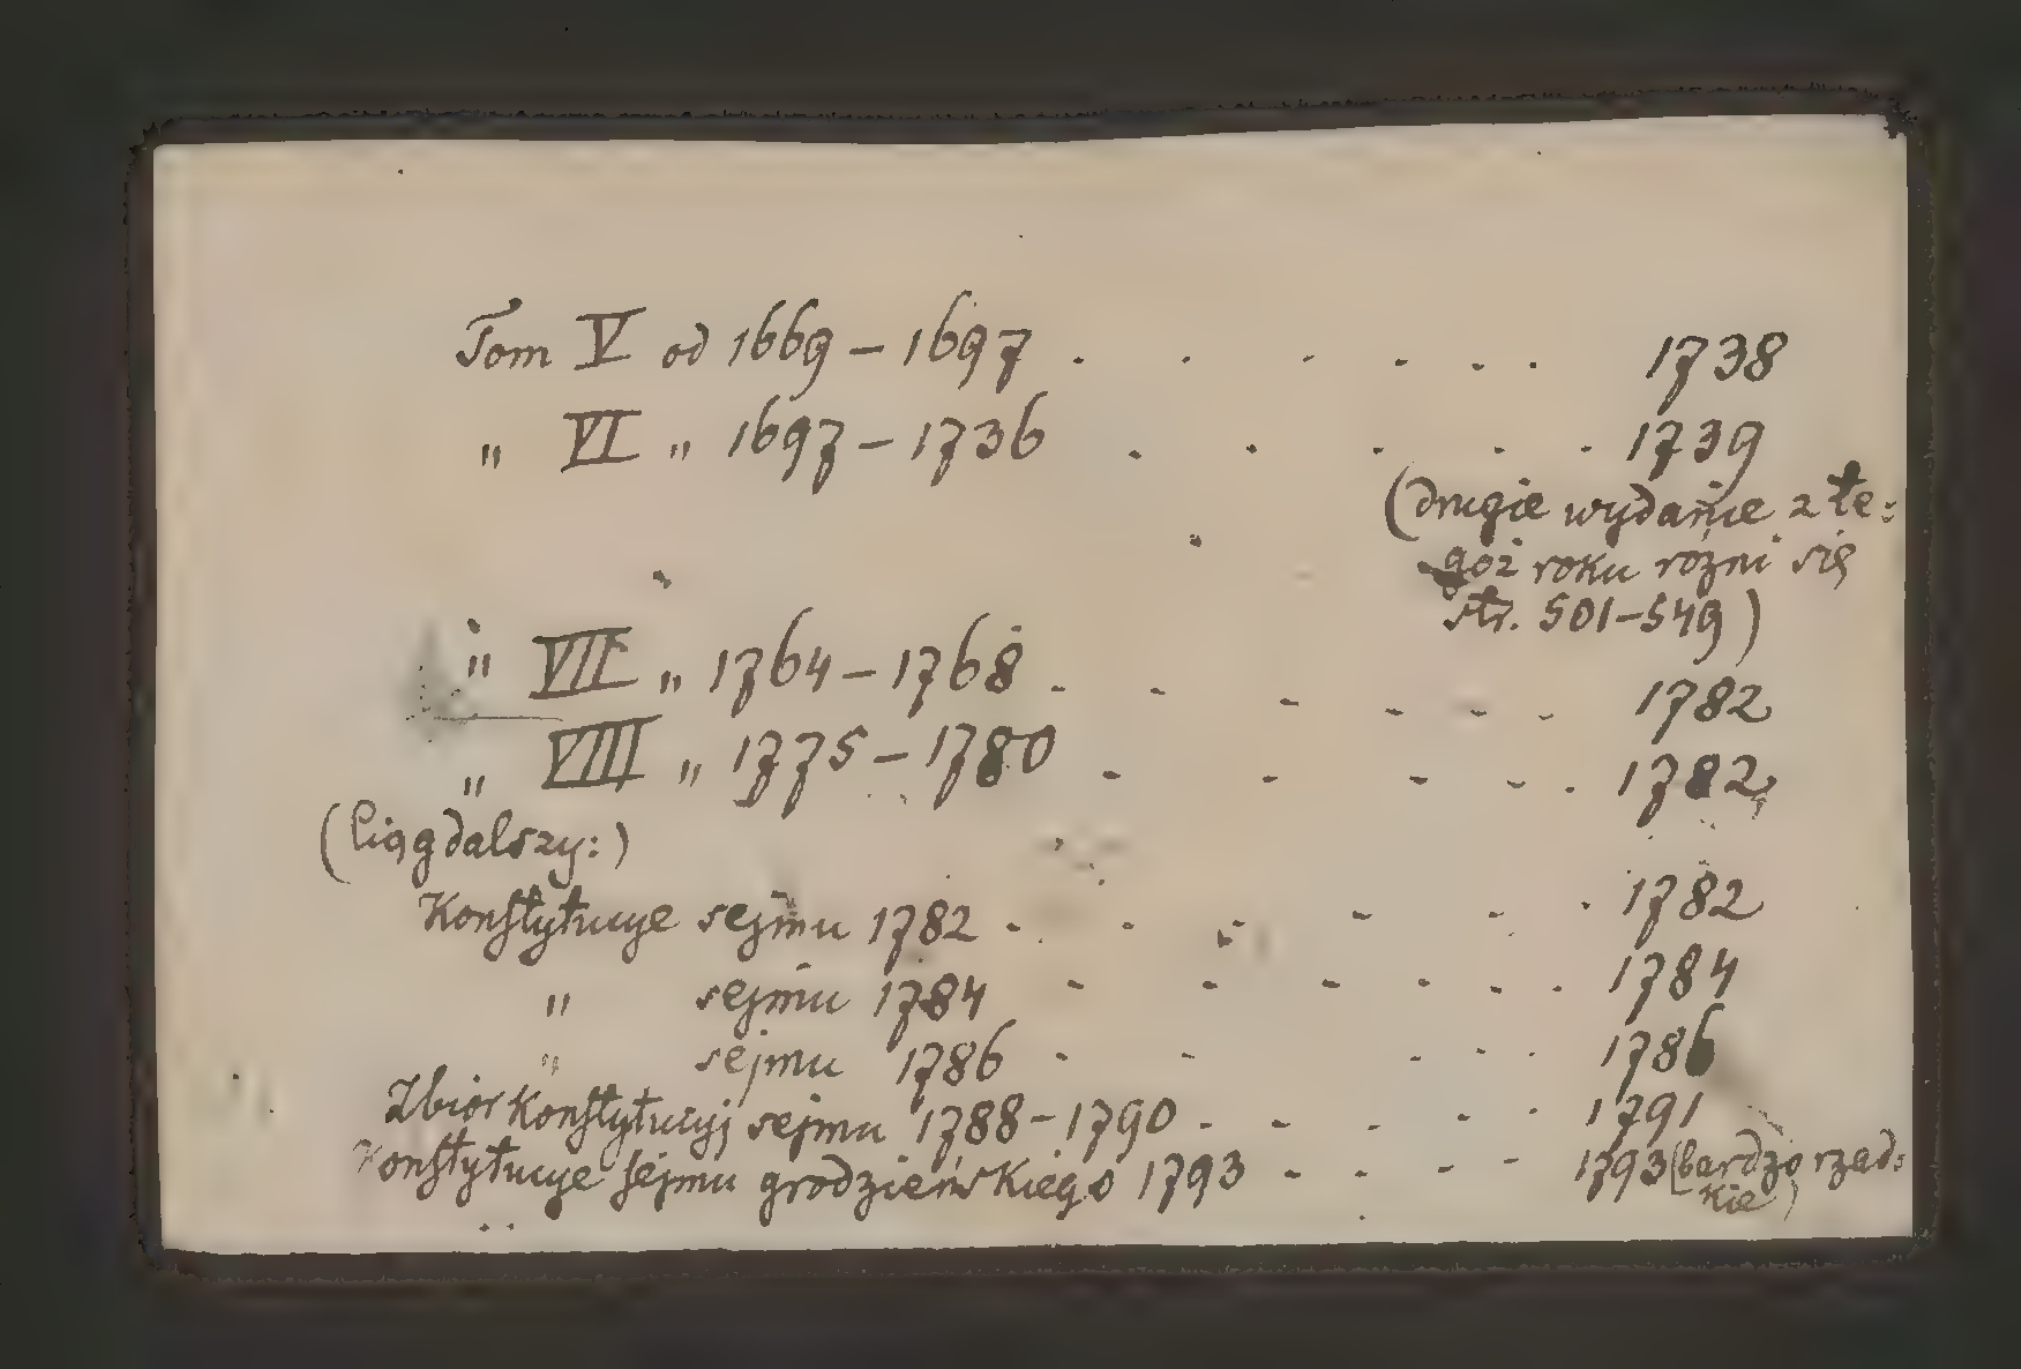 Tom V od 1669 – 1697 . . . . . . 1738
„ VI „ 1697 – 1736 . . . . . 1739
(drugie wydanie z te:
goż roku różni się
str. 501–549)
„ VII „ 1764 – 1768 . . . . . . 1782
„ VIII „ 1775 – 1780 . . . . . 1782
(Ciąg dalszy:)
Konstytucye sejmu 1782 . . . . . . 1782
„ sejmu 1784 . . . . . . 1784
„ sejmu 1786 . . . . . 1786
Zbiór Konstytucyj sejmu 1788–1790 . . . . . 1791
Konstytucye sejmu grodzieńskiego 1793 . . . . 1793 (bardzo rzad:
kie)